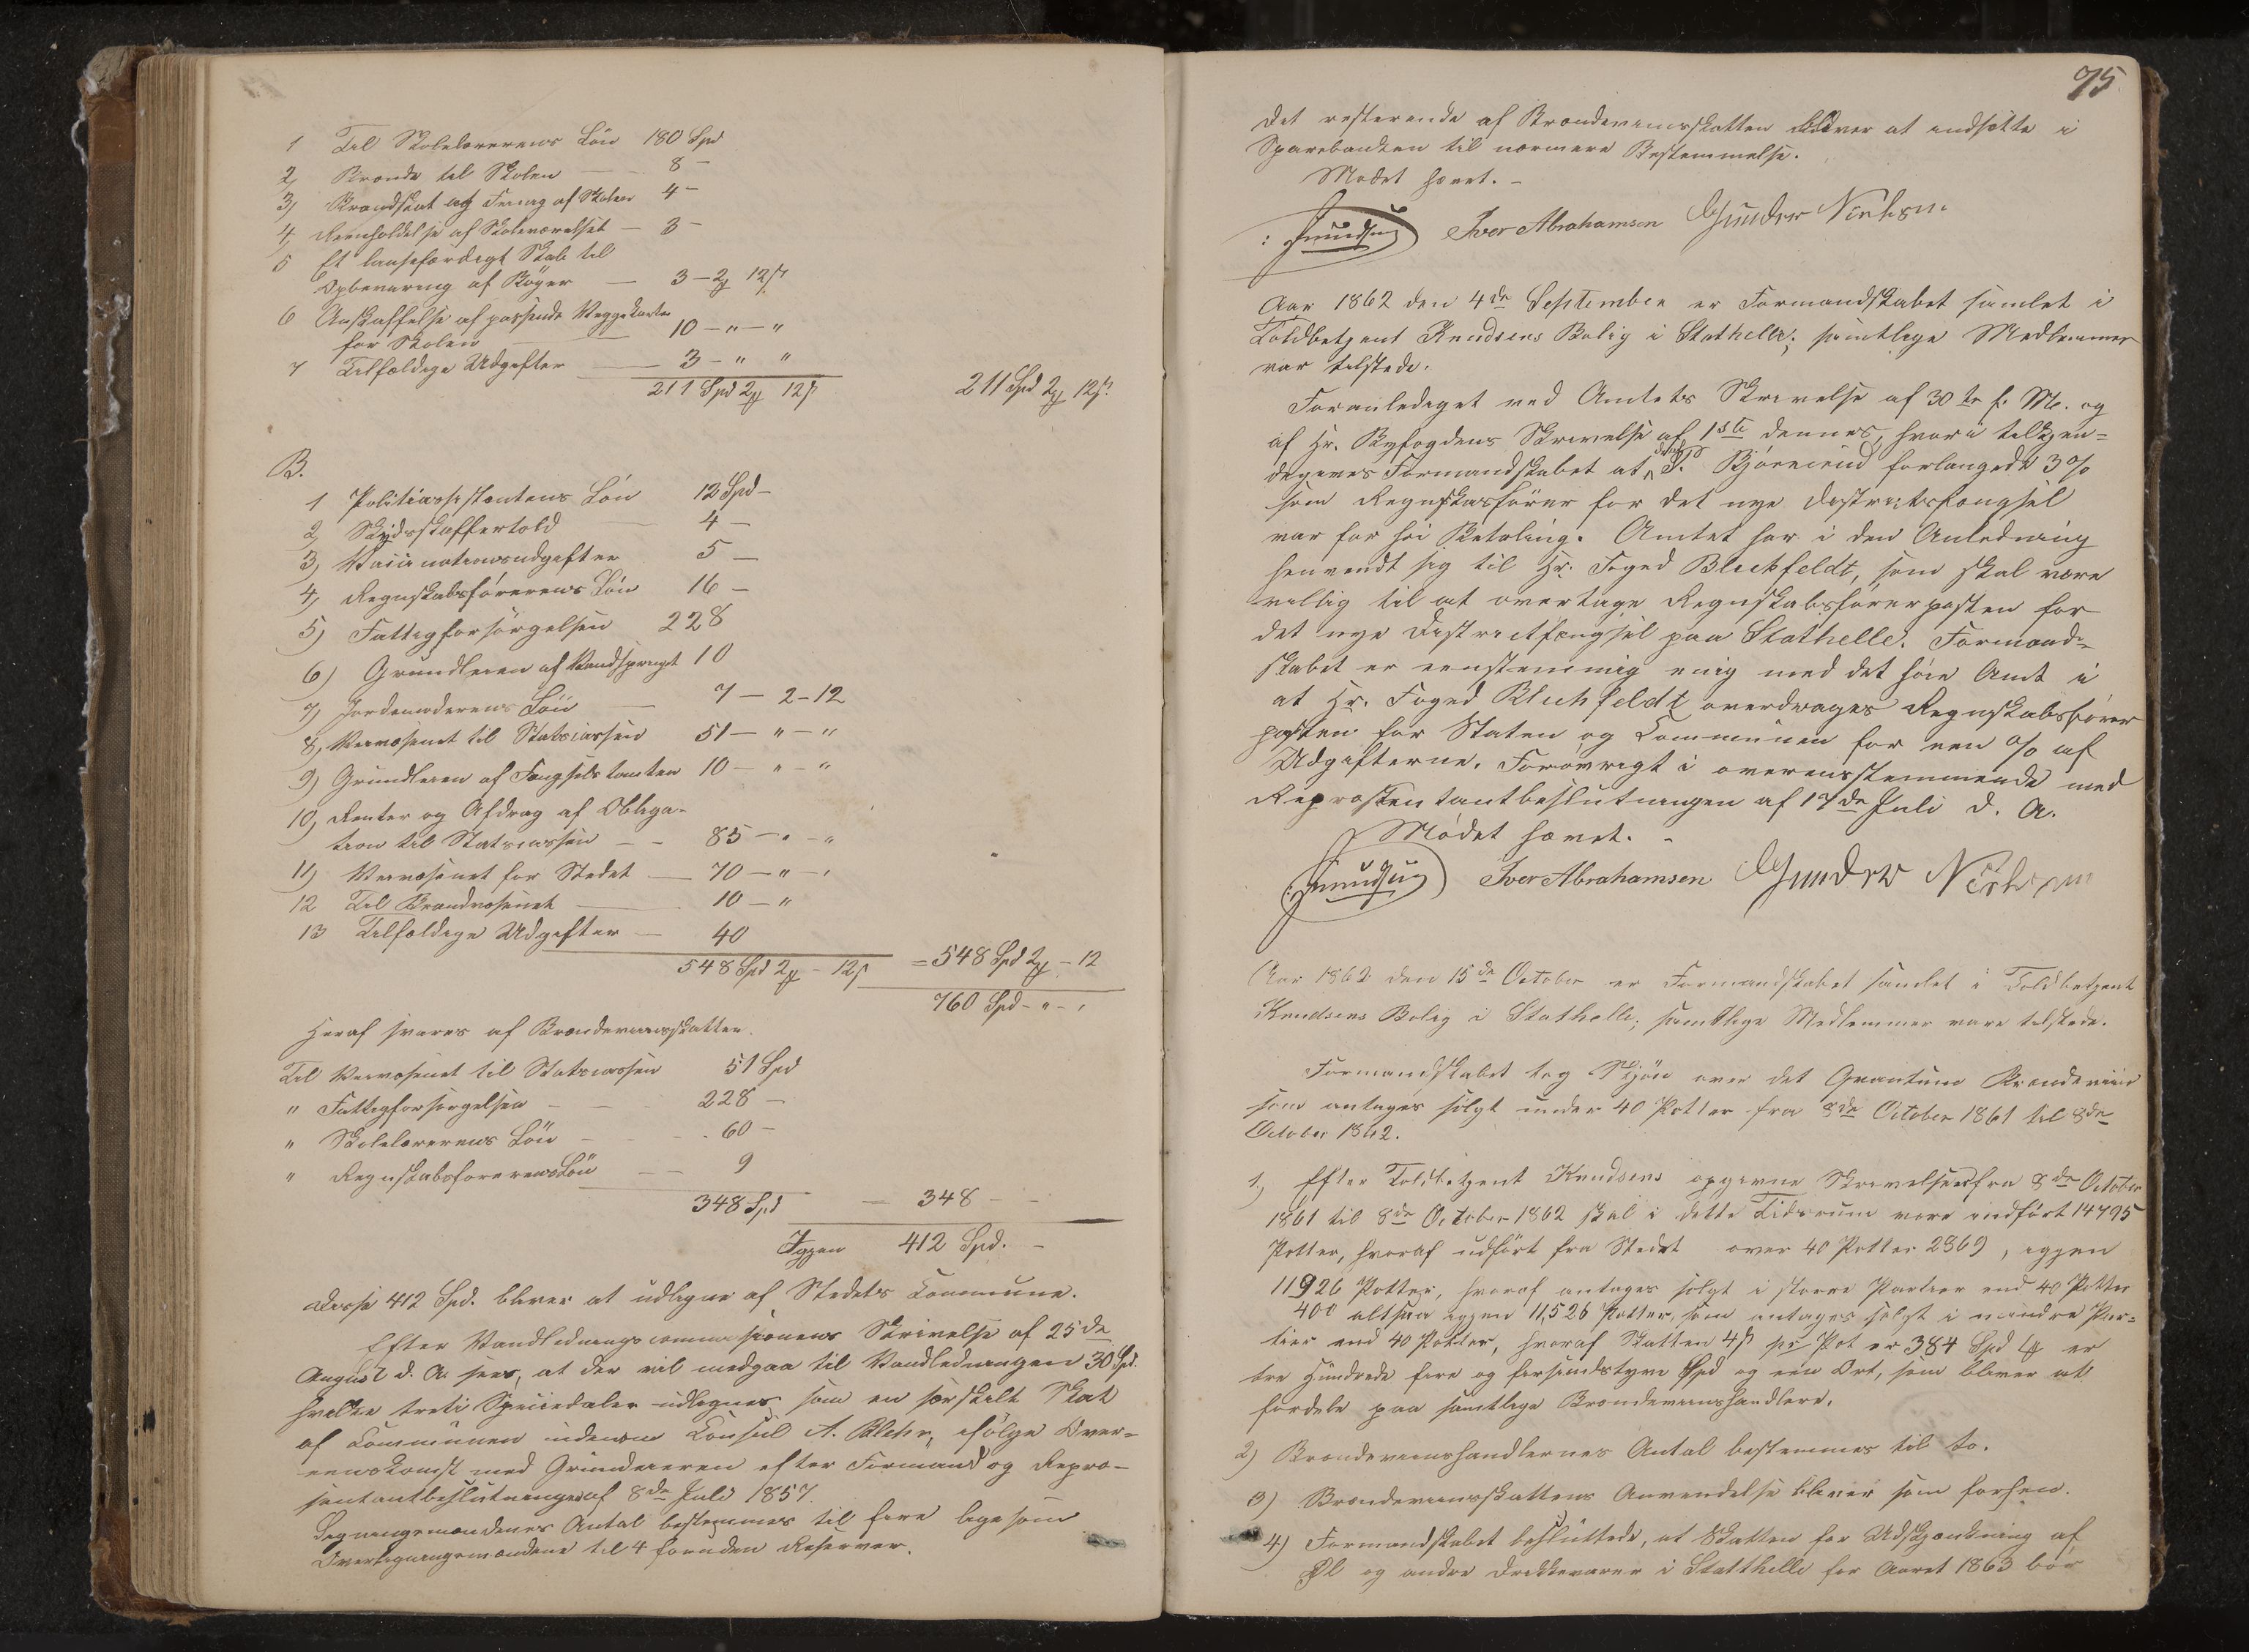 1 Til Skolelærerens Løn 180 Spd
2, Brænde til Skolen — 8 —
3, Brandskat og Feiing af Skolen 4 —
4, Reenholdelse af Skoleværelset — 3 —
5 Et laasefærdigt Skab til
Opbevaring af Bøger — 3 — 2 ƒ 12 ß
6 Anskaffelse af passende Veggekarter
for Skolen — 10 — " — "
7 Tilfældige Udgifter — 3 — " "
211 Spd 2 ƒ 12 ß 211 Spd 2 ƒ 12 ß.
B.
1 Politiassistentens Løn 12 Spd —
2, Skydsskaffertold 4 —
3, Vaccinationsudgifter 5 —
4, Regnskabsførerens Løn 16 —
5) Fattigforsørgelsen 228
6) Grundleien af Vandspringet 10
7) Jordemoderens Løn — 7 — 2 — 12
8, Veivæsenet til Statscassen 51 — " — "
9) Grundleien af Fængselstomten 10 — " — "
10, Renter og Afdrag af Obliga-
tion til Statscassen — — 85 — " — "
11) Veivæsenet for Stedet — 70 — " — "
12 Til Brandvæsenet — 10 — "
13 Tilfældige Udgifter — 40
548 Spd 2 ƒ — 12 ß = 548 Spd 2 ƒ — 12
760 Spd — " — "
Heraf svares af Brændeviinsskatten.
Til Veivæsenet til Statscassen 51 Spd
" Fattigforsørgelsen — — 228 —
" Skolelærerens Løn — — 60 —
" Regnskabsførerens Løn — — 9
348 Spd — 348 — —
Igjen 412 Spd. —
Disse 412 Spd. bliver at udligne af Stedets Commune.
Efter Vandledningscommissionens Skrivelse af 25de
August d. A. sees, at der vil medgaa til Vandledningen 30 Spd.
hvilke treti Speciedaler udlignes som en særskilt Skat
af Communen Consul A. Blehr, ifølge Over-
eenskomst med Grundeieren efter Formand og Repræ-
sentantbeslutninger af 8de Juli 1857.
Ligningsmændenes Antal bestemmes til fire ligesom
Overligningsmændene til 4 foruden Reserver.
75.
Det resterende af Brændeviinsskatten bliver at indsætte i
Sparebanken til nærmere Bestemmelse.
Mødet hævet. —
Knudsen Iver Abrahamsen Gunder Nielsen
Aar 1862 den 4de September er Formandskabet samlet i
Toldbetjent Knudsens Bolig i Stathelle; samtlige Medlemmer
var tilstede.
Foranlediget ved Amtets Skrivelse af 30te f. M. og
af Hr. Byfogdens Skrivelse af 1ste dennes, hvori tilkjen-
degives Formandskabet at P. Bjørnerud forlangede 3 %
som Regnskabsfører for det nye Districtsfængsel
var for høi Betaling. Amtet har i den Anledning
henvendt sig til Hr. Foged Blichfeldt, som skal være
villig til at overtage Regnskabsførerposten for
det nye Districtfængsel paa Stathelle. Formand-
skabet er eenstemmig enig med det høie Amt i
at Hr. Foged Blichfeldt overdrages Regnskabsfører
posten for Staten og Communen for een % af
Udgifterne. Forøvrigt i overensstemmende med
Repræsentantbeslutningen af 17de Juli d. A.
Mødet hævet. —
Knudsen Iver Abrahamsen Gunder Nielsen
Aar 1862 den 15de October er Formandskabet samlet i Toldbetjent
Knudsens Bolig i Stathelle; samtlige Medlemmer vare tilstede.
Formandskabet tog Skjøn over det Qvantum Brændeviin
som antages solgt under 40 Potter fra 8de October 1861 til 8de
October 1862.
1, Efter Toldbetjent Knudsens opgivne Skrivelser fra 8de October
1861 til 8de October 1862 skal i dette Tidsrum være indført 14795
Potter, hvoraf udført fra Stedet over 40 Potter 2869, igjen
11926 Potter, hvoraf antages solgt i større Partier end 40 Potter
400 altsaa igjen 11,526 Potter, som antages solgt i mindre Par-
tier end 40 Potter, hvoraf Skatten 4 ß pr Pot er 384 Spd 1 ƒ er
tre Hundrede fire og firsindstyve Spd og een Ort, som bliver at
fordele paa samtlige Brændeviinshandlere.
2) Brændeviinshandlernes Antal bestemmes til to.
3) Brændeviinsskattens Anvendelse bliver som forhen.
4) Formandskabet besluttede, at Skatten for Udskjænkning af
Øl og andre Drikkevarer i Statthelle for Aaret 1863 bør